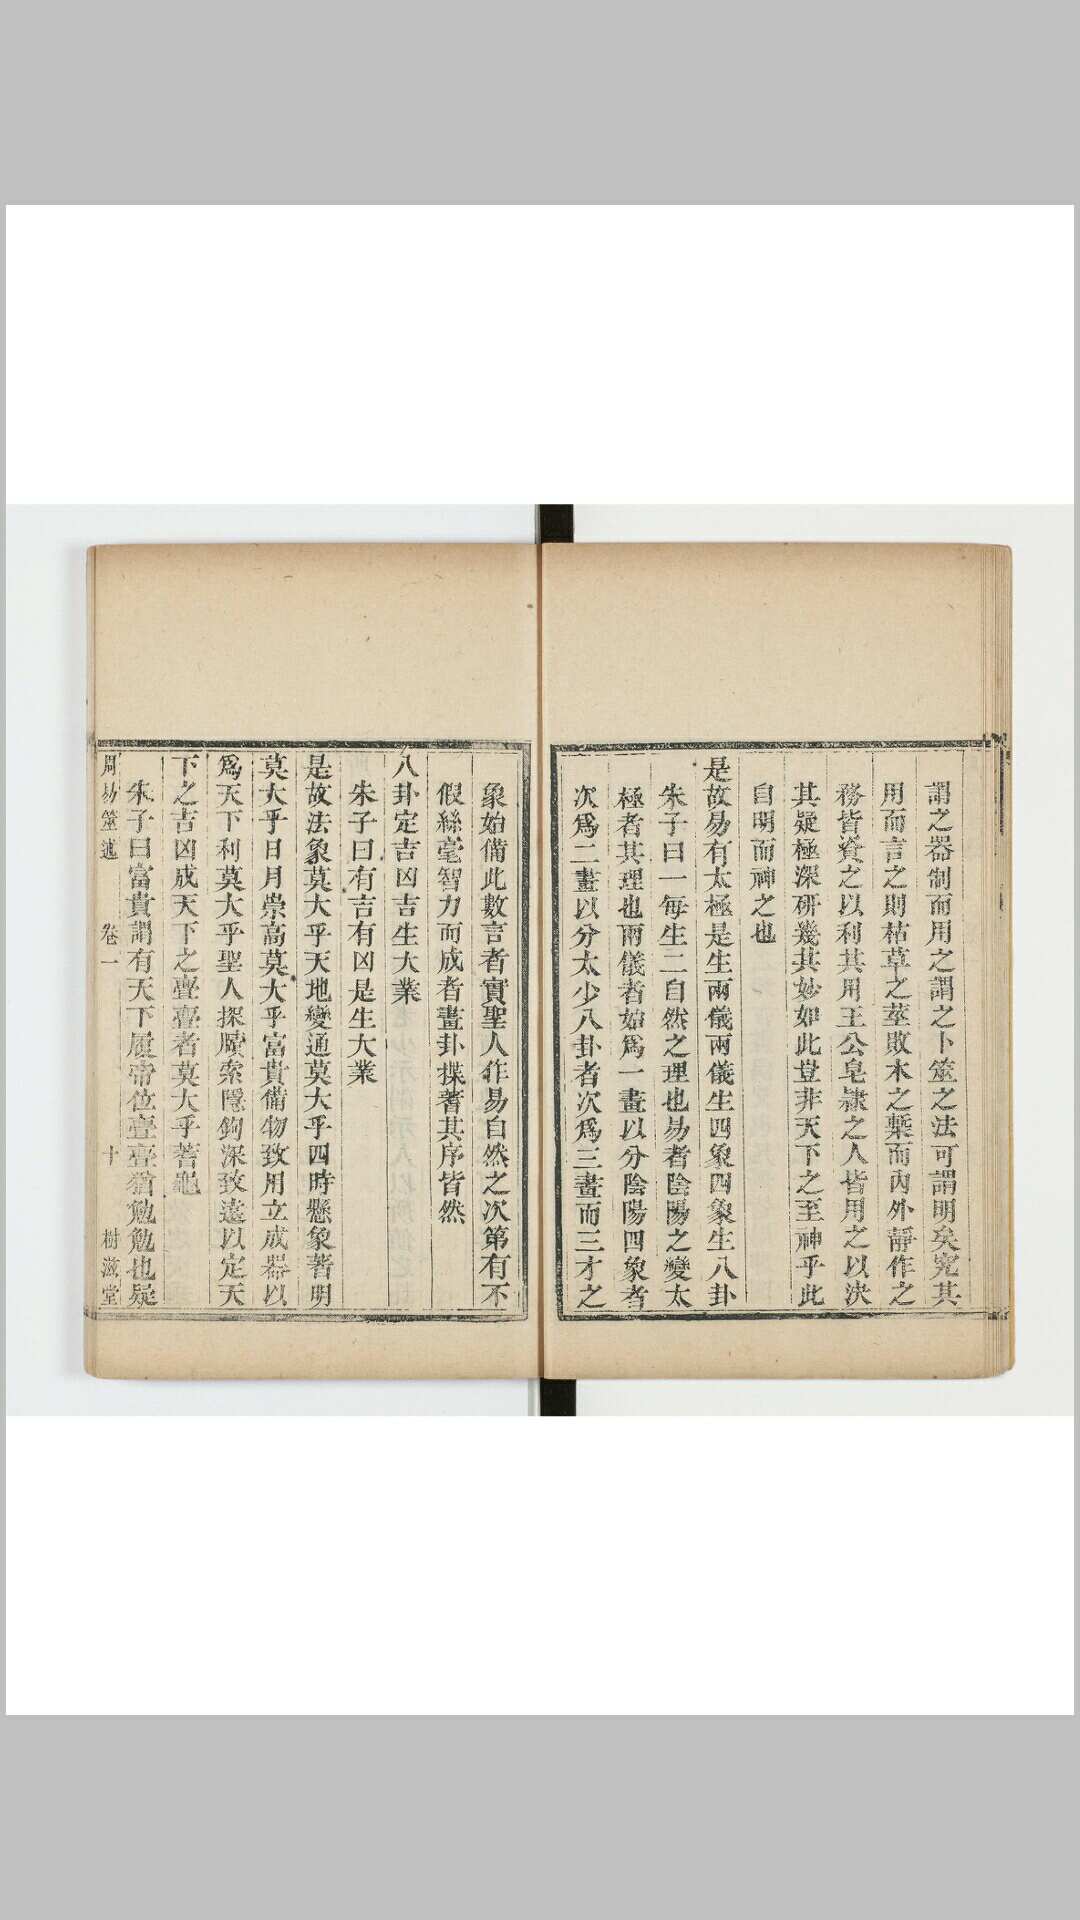 謂之器制而用之謂之卜筮之法可謂明矣究其
用而言之則枯草之莖敗木之蘗而內外靜作之
務皆資之以利其用王公皂隸之人皆用之以決
其疑極深硏幾其妙如此豈非天下之至神乎此
自明而神之也
是故易有太極是生兩儀兩儀生四象四象生八卦
朱子曰一每生二自然之理也易者陰陽之變太
極者其理也兩儀者始爲一畫以分陰陽四象者
次爲二畫以分太少八卦者次爲三畫而三才之
象始備此數言者實聖人作易自然之次第有不
假絲毫智力而成者畫卦揲蓍其序皆然
八卦定吉凶吉生大業
朱子曰有吉有凶是生大業
是故法象莫大乎天地變通莫大乎四時懸象著明
莫大乎日月崇高莫大乎富貴備物致用立成器以
爲天下利莫大乎聖人探賾索隱鉤深致遠以定天
下之吉凶成天下之亹亹者莫大乎蓍龜
朱子曰富貴謂有天下履帝位亹亹猶勉勉也疑
周易筮述 卷一 十 樹滋堂